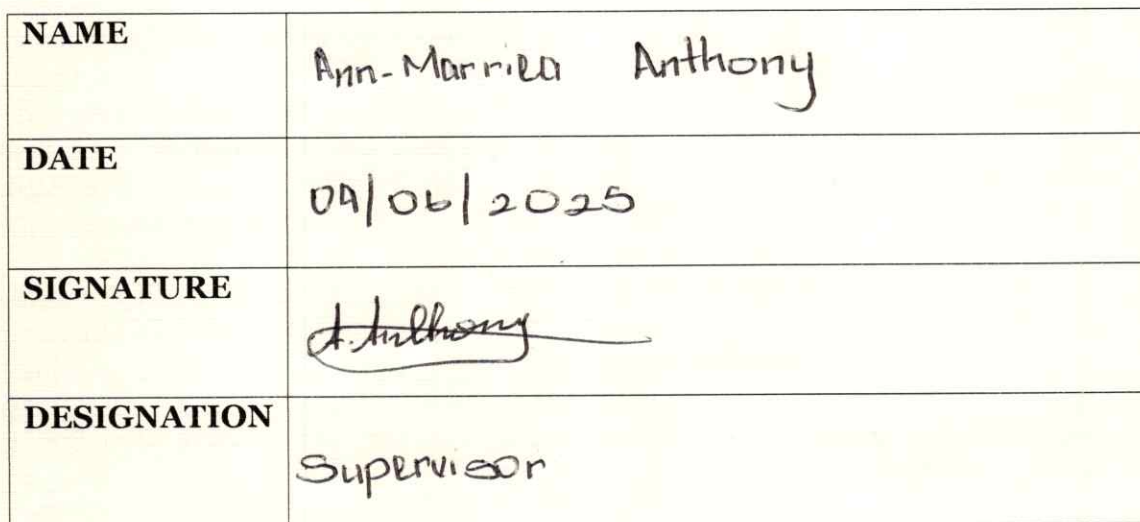 NAME Ann-Marriea Anthony
DATE 09/06/2025
SIGNATURE A. Anthony
DESIGNATION Supervisor